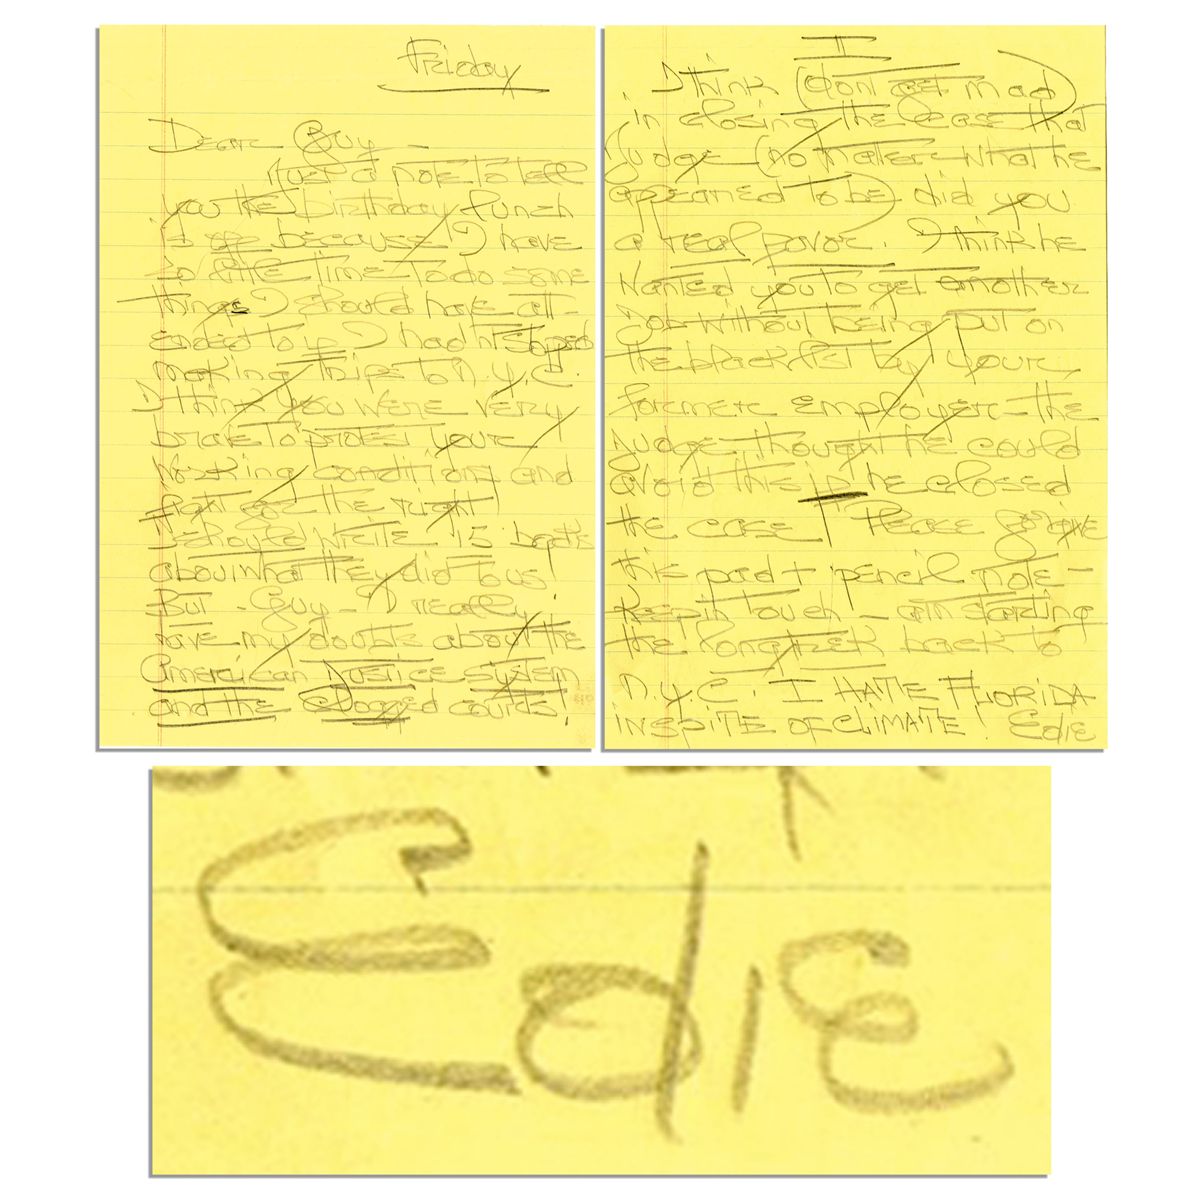 Friday
Dear Guy -
Just a note to tell
you the birthday punch
is off because I have
so little time to do some
things I should have att-
ended to if I hadn't stopped
making trips to N.Y.C.
I think you were very
brave to protest your
working conditions and
fight for the right!
I should write 15 books
about what they did to us!
But - Guy - I really
have my doubts about the
American Justice system
and the clogged courts!
II
I think (don't get mad)
in closing the case that
judge (no matter what he
appeared to be) did you
a real favor. I think he
wanted you to get another
job without being put on
the blacklist by your
former employer - the
judge thought he could
avoid this if he closed
the case! Please forgive
this pad + pencil note -
Keep in touch - am starting
the long trek back to
N.Y.C. I HATE FLORIDA
IN SPITE OF CLIMATE! Edie
Edie